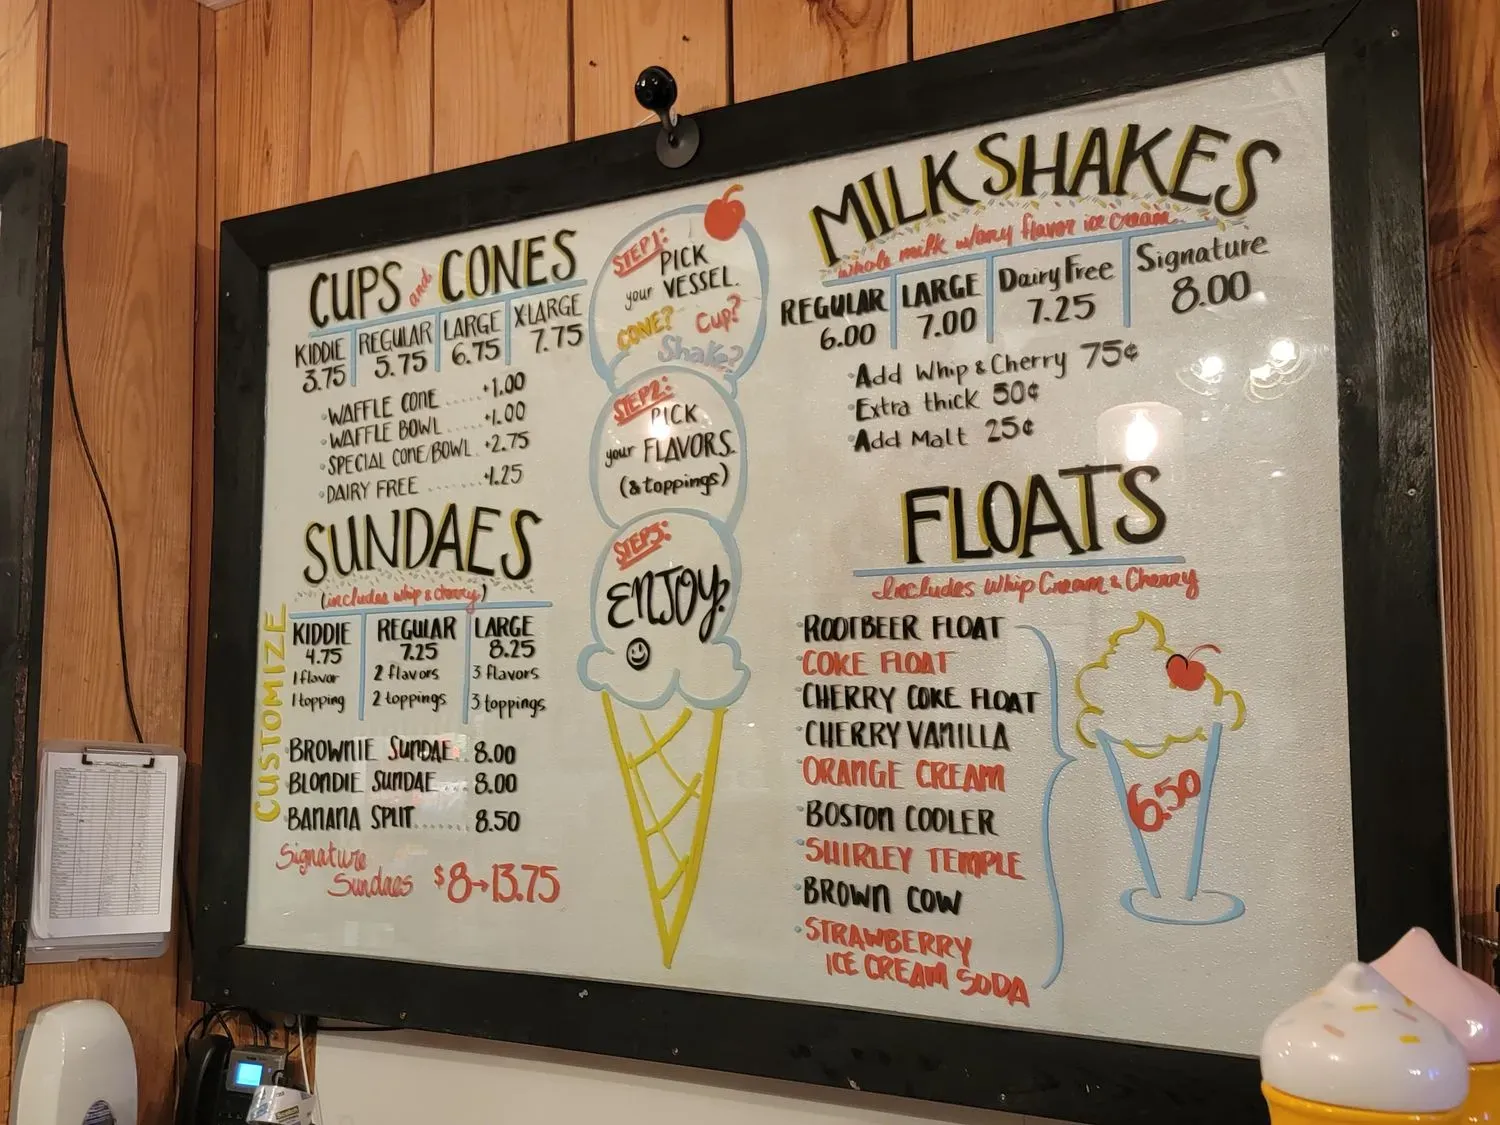 CUPS and CONES
KIDDIE REGULAR LARGE X-LARGE
3.75 5.75 6.75 7.75
·WAFFLE CONE ...... +1.00
·WAFFLE BOWL ...... +1.00
·SPECIAL CONE/BOWL . +2.75
·DAIRY FREE ........ +1.25
SUNDAES
(includes whip & cherry)
CUSTOMIZE
KIDDIE REGULAR LARGE
4.75 7.25 8.25
1 flavor 2 flavors 3 flavors
1 topping 2 toppings 3 toppings
·BROWNIE SUNDAE.. 8.00
·BLONDIE SUNDAE ... 8.00
·BANANA SPLIT...... 8.50
Signature
Sundaes $8→13.75
STEP 1:
PICK
your VESSEL.
CONE? Cup?
Shake?
STEP 2:
PICK
your FLAVORS.
(& toppings)
STEP 3:
ENJOY!
MILKSHAKES
whole milk w/any flavor ice cream
REGULAR LARGE Dairy Free Signature
6.00 7.00 7.25 8.00
·Add Whip & Cherry 75¢
·Extra thick 50¢
·Add Malt 25¢
FLOATS
Includes Whip Cream & Cherry
·ROOTBEER FLOAT
·COKE FLOAT
·CHERRY COKE FLOAT
·CHERRY VANILLA
·ORANGE CREAM
·BOSTON COOLER
·SHIRLEY TEMPLE
·BROWN COW
·STRAWBERRY
ICE CREAM SODA
6.50